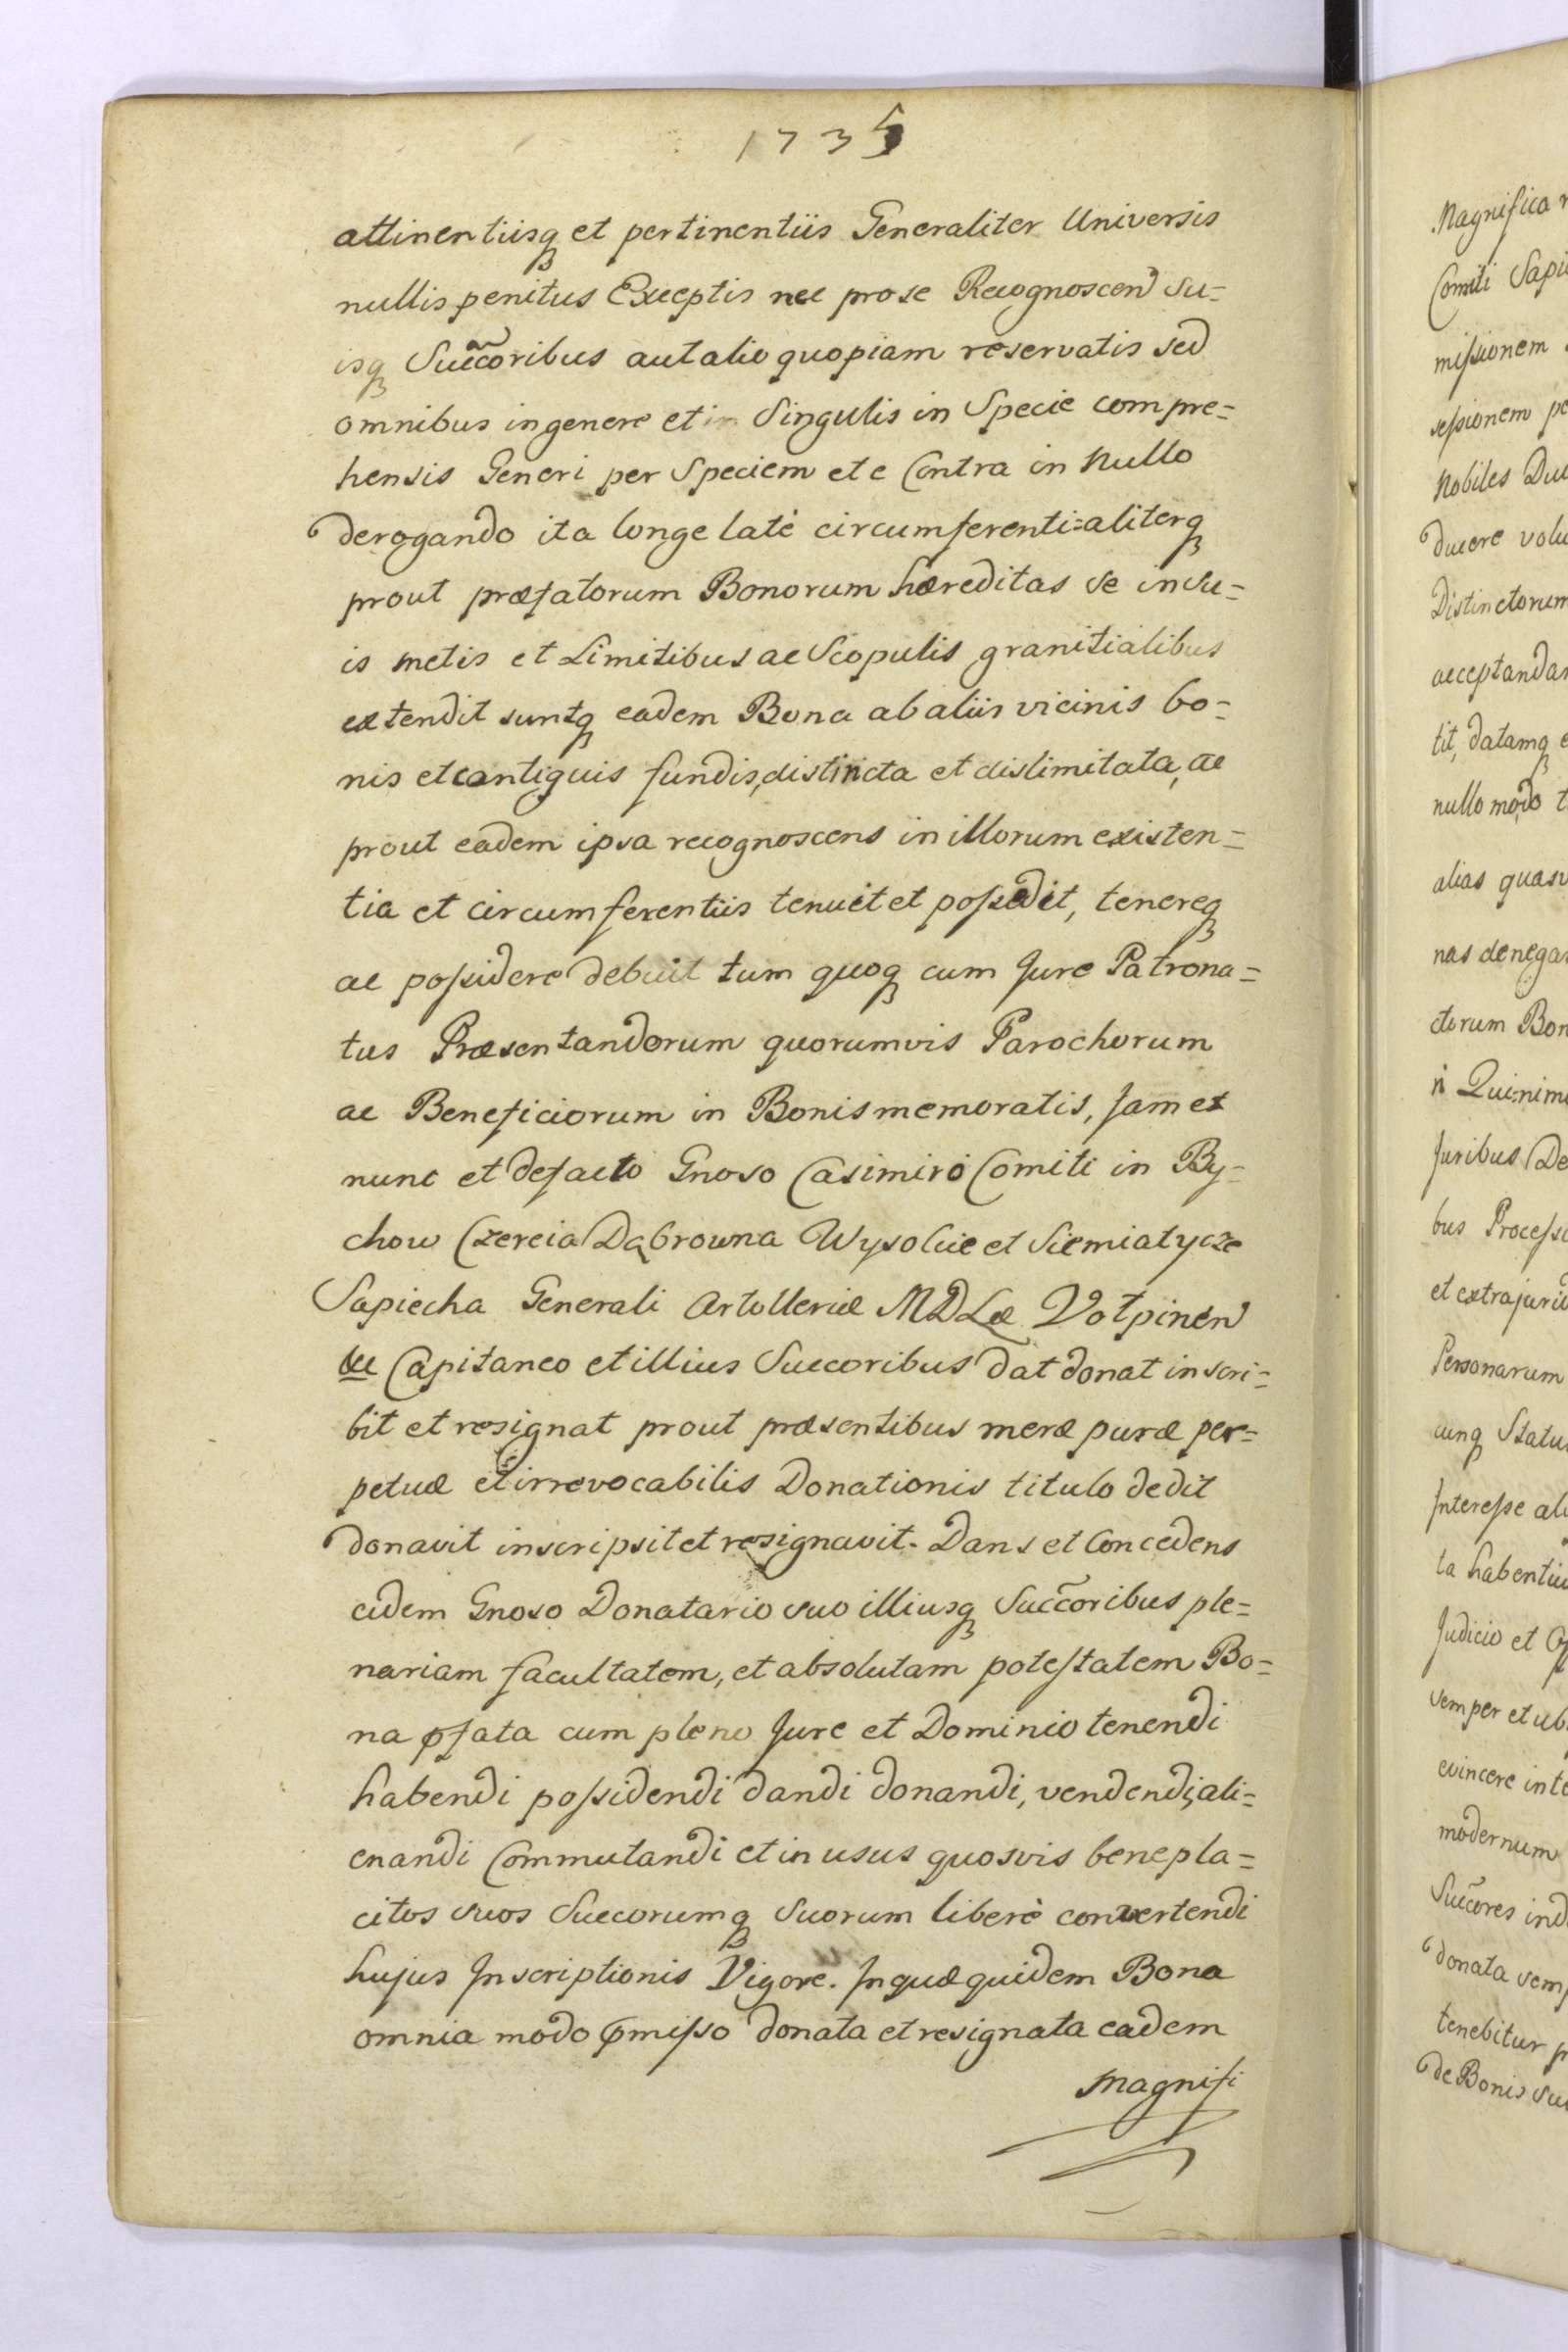 1735
attinentiisq et pertinentiis Generaliter Universis
nullis penitus Exceptis nec pro se Recognoscen su=
isq Succoribus aut alio quopiam reservatis sed
omnibus in genere et in Singulis in Specie compre=
hensis Generi per Speciem et e Contra in Nullo
derogando ita longe laté circumferenti=aliterq
prout præfatorum Bonorum hæreditas se in su=
is metis et Limitibus ac Scopulis granitialibus
extendit suntq eadem Bona ab aliis vicinis bo=
nis et contiguis fundis, distincta et dislimitata, ac
prout eadem ipsa recognoscens in illorum existen=
tia et circumferentiis tenuit et possedit, tenereq
ac possidere debuit tum quoq cum Jure Patrona=
tus Præsentandorum quorumvis Parochorum
ac Beneficiorum in Bonis memoratis, Jam ex
nunc et defacto Gnoso Casimiro Comiti in By=
chow Czereia Dąbrowna Wysokie et Siemiatycze
Sapiecha Generali Artolleriæ MDLæ Wołpinen
&c Capitaneo et illius Succoribus dat donat inscri=
bit et resignat prout præsentibus meræ puræ per=
petuæ et irrevocabilis Donationis titulo dedit
donavit inscripsit et resignavit. Dans et Concedens
eidem Gnoso Donatario suo illiusq Succoribus ple=
nariam facultatem, et absolutam potestatem Bo=
na pfata cum pleno Jure et Dominio tenendi
habendi possidendi dandi donandi, vendendi, ali=
enandi Commutandi et in usus quosvis benepla=
citos suos Succorumq Suorum liberè convertendi
hujus Inscriptionis Vigore. In quæ quidem Bona
omnia modo pmisso donata et resignata eadem
Magnifi
Magnifica
Comiti Sapi
missionem
sessionem pe
Nobiles Du
ducere volu
Distinctorum
acceptandam
tit, datamq e
nullo modo t
alias quasv
nas denegan
ctorum Bon
Quinim
Juribus De
bus Processi
et extrajuri
Personarum
cunq Statu
Interesse ali
ta habentiu
Judicio et
semper et ub
evincere inte
modernum
Succores ind
donata sem
tenebitur
de Bonis su